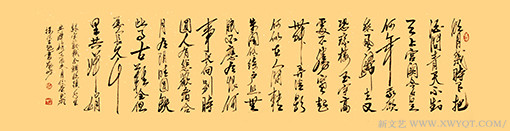 明月幾時有把
酒問青天不知
天上宮闕今夕是
何年我欲
乘風歸去又
恐瓊樓玉宇高
處不勝寒起
舞弄清影
何似在人間轉
朱閣低綺戶照無
眠不應有恨何
事長向別時
圓人有悲歡離合
月有陰晴圓缺
此事古難全但
願人長久千
里共嬋娟
新文艺